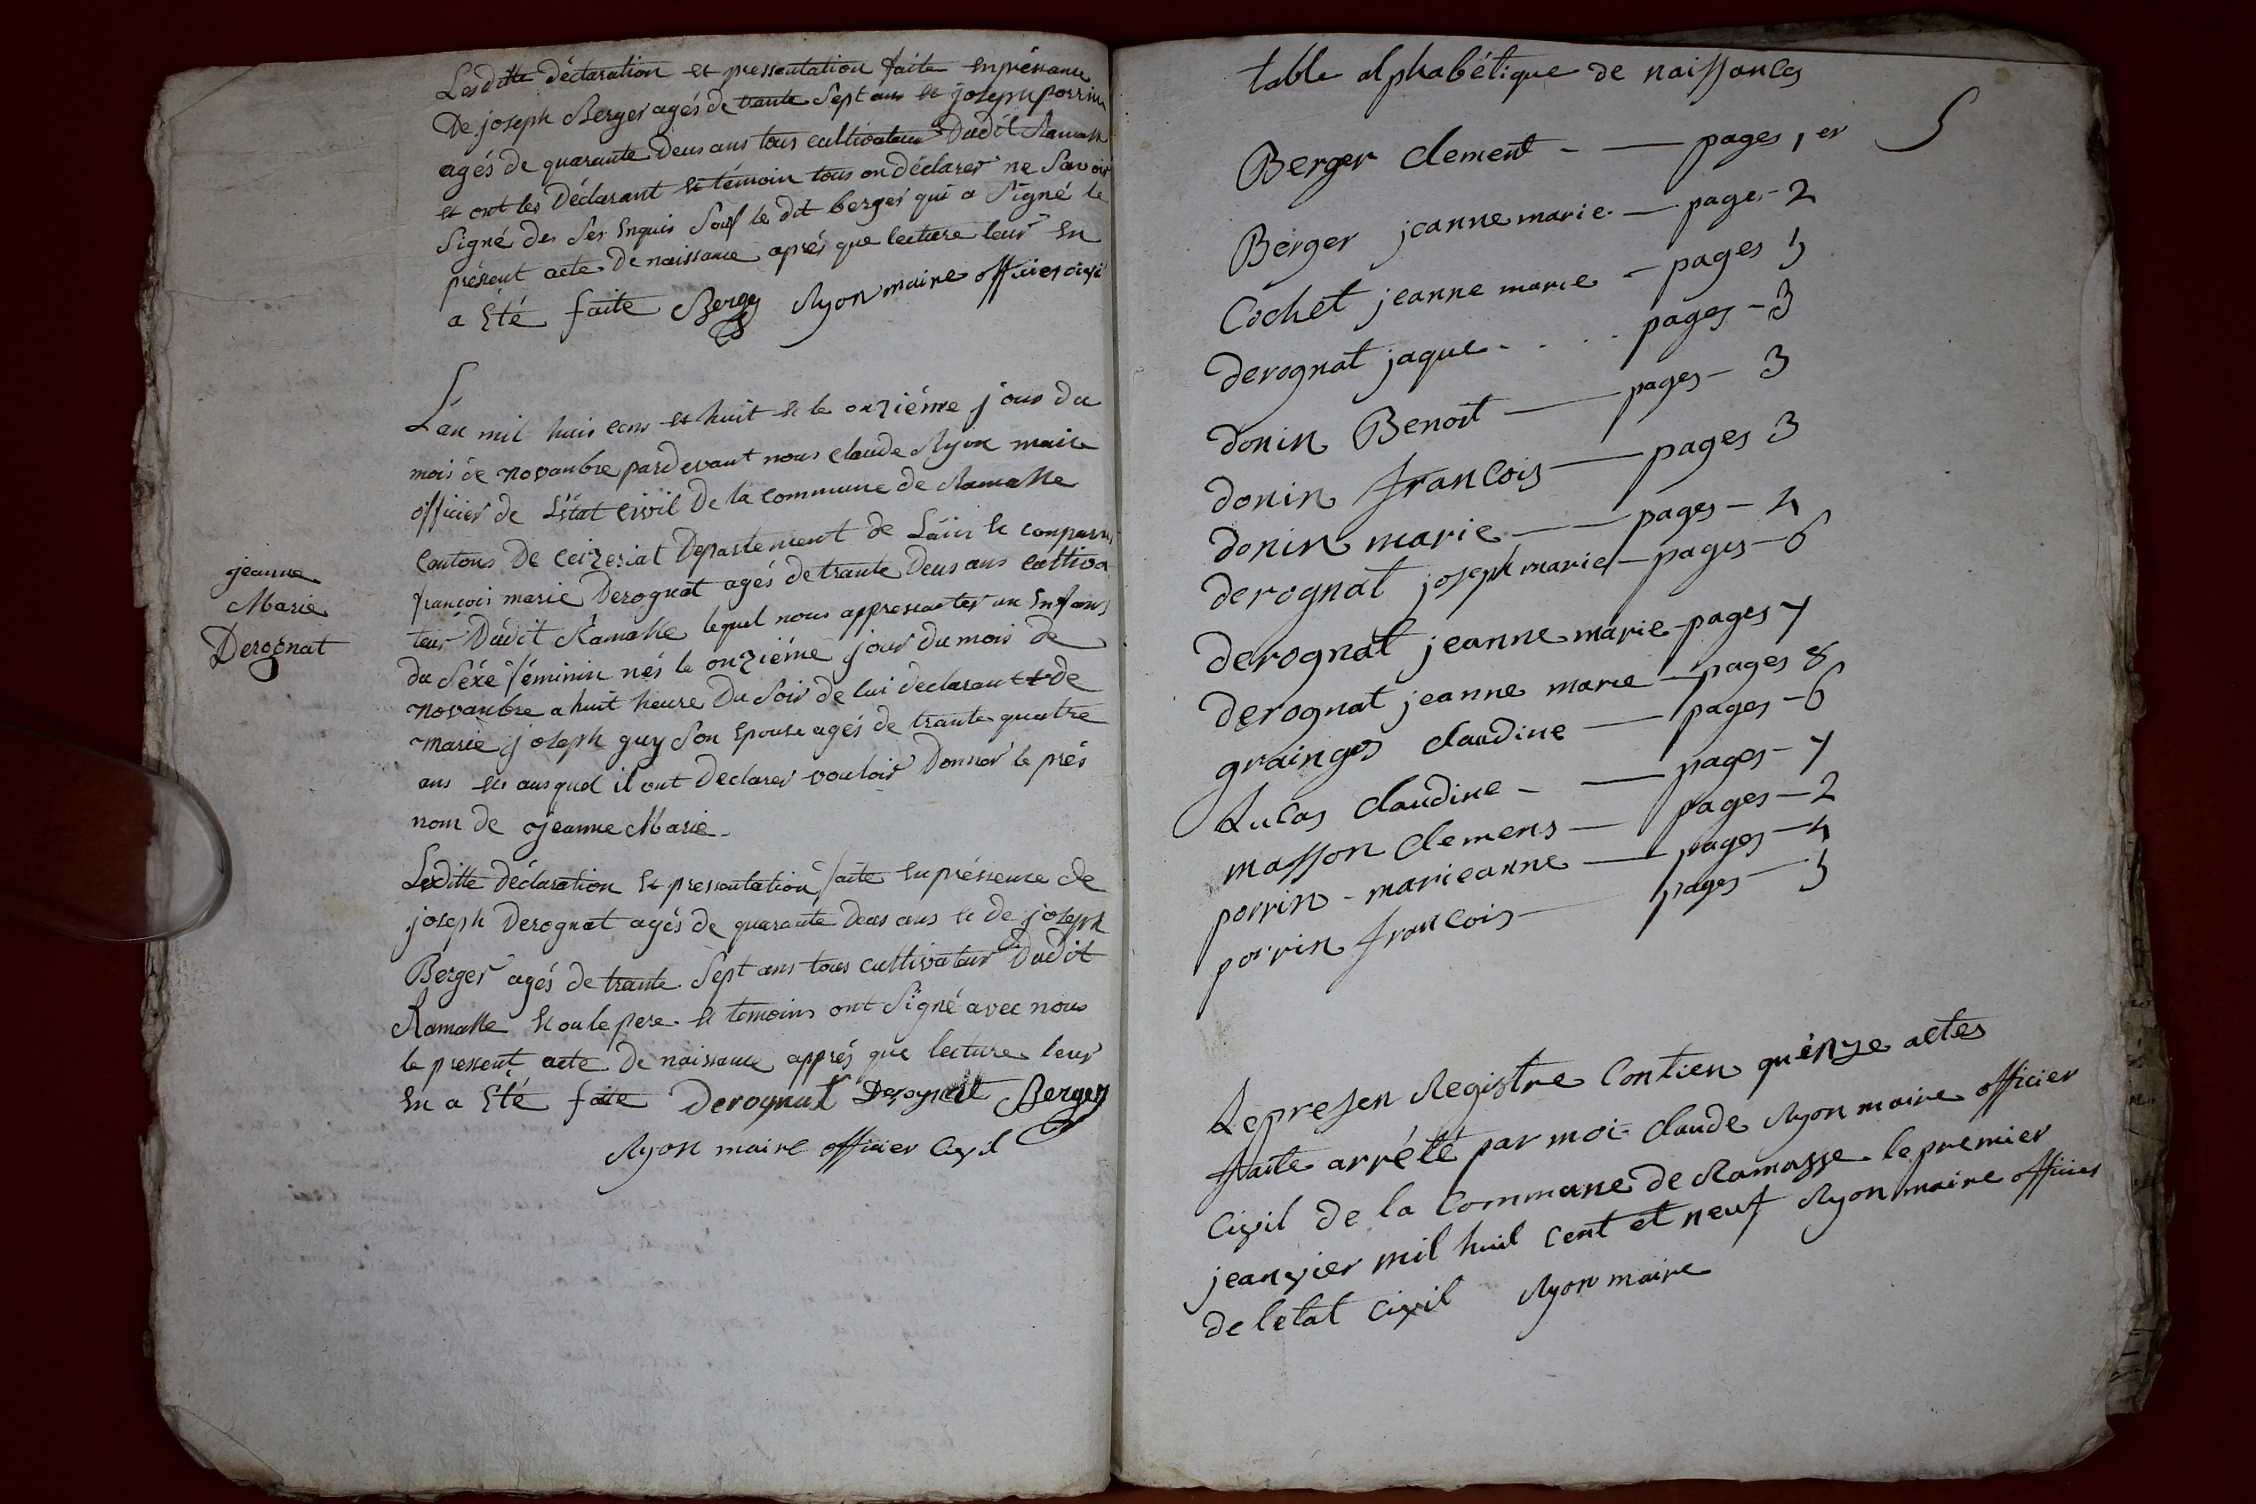 Lesditte déclaration et pressentation faite en présance
De joseph Berger agés de trante Sept ans et joseph porrin
agés de quarante Deus ans tous cultivateur Dudit Ramasse
et ont les Déclarant et témoin tous on déclarer ne Savoir
Signé de Ser Enquis Sauf le dit berger qui a Signé le
présent acte De naissance aprés que lecture leur En
a Eté faite Berger Ryon maire officier civil
L'an mil huis cens et huit et le onziéme jour du
mois de novanbre pardevant nous claude Ryon maire
officier de L'état civil De la commune de Ramasse
Cantons De Ceizeriat Departement de L'ain Et conparus
françois marie Derognat agés de trante Deus ans cultiva
teur Dudit Ramasse lequel nous appressanter un Enfans
du Séxe féminin nés le onziéme jour du mois de
novanbre a huit heure Du Soir de lui declarant et de
marie joseph guy Son Epouse agés de trante quatre
ans Et ausquel il ont Declarer vouloir Donner le prés
nom de jeanne Marie
jeanne
Marie
Derognat
Lesditte déclaration Et pressentation faite En présence de
joseph Derognat agés de quarante Deus ans Et de joseph
Berger agés de trante Sept ans tous cultivateur Dudit
Ramasse Et ou le pere Et temoins ont Signé avec nous
le present acte De naissance apprés que lecture leur
En a Eté faite Derognat Derognat Berger
Ryon maire officier Civil
table alphabétique de naissances
5
Berger clement - — pages 1er
Berger jeanne marie — pages - 2
Cochet jeanne marie — pages 5
derognat jaque . . . . pages - 3
donin Benoit — pages - 3
donin francois — pages 3
donin marie — pages - 4
derognat joseph marie — pages - 6
derognat jeanne marie pages 7
derognat jeanne marie — pages 8
grainger claudine — pages - 6
Lucas claudine - — pages - 7
masson clemens — pages - 2
porrin - marieanne — pages - 4
porrin francois — pages - 5
Le presen Registre Contien quinze actes
faite arrété par moi claude Ryon maire officier
Civil de la Commune de Ramasse le premier
jeanvier mil huit Cent et neuf Ryon maire officier
de l'etat Civil Ryon maire